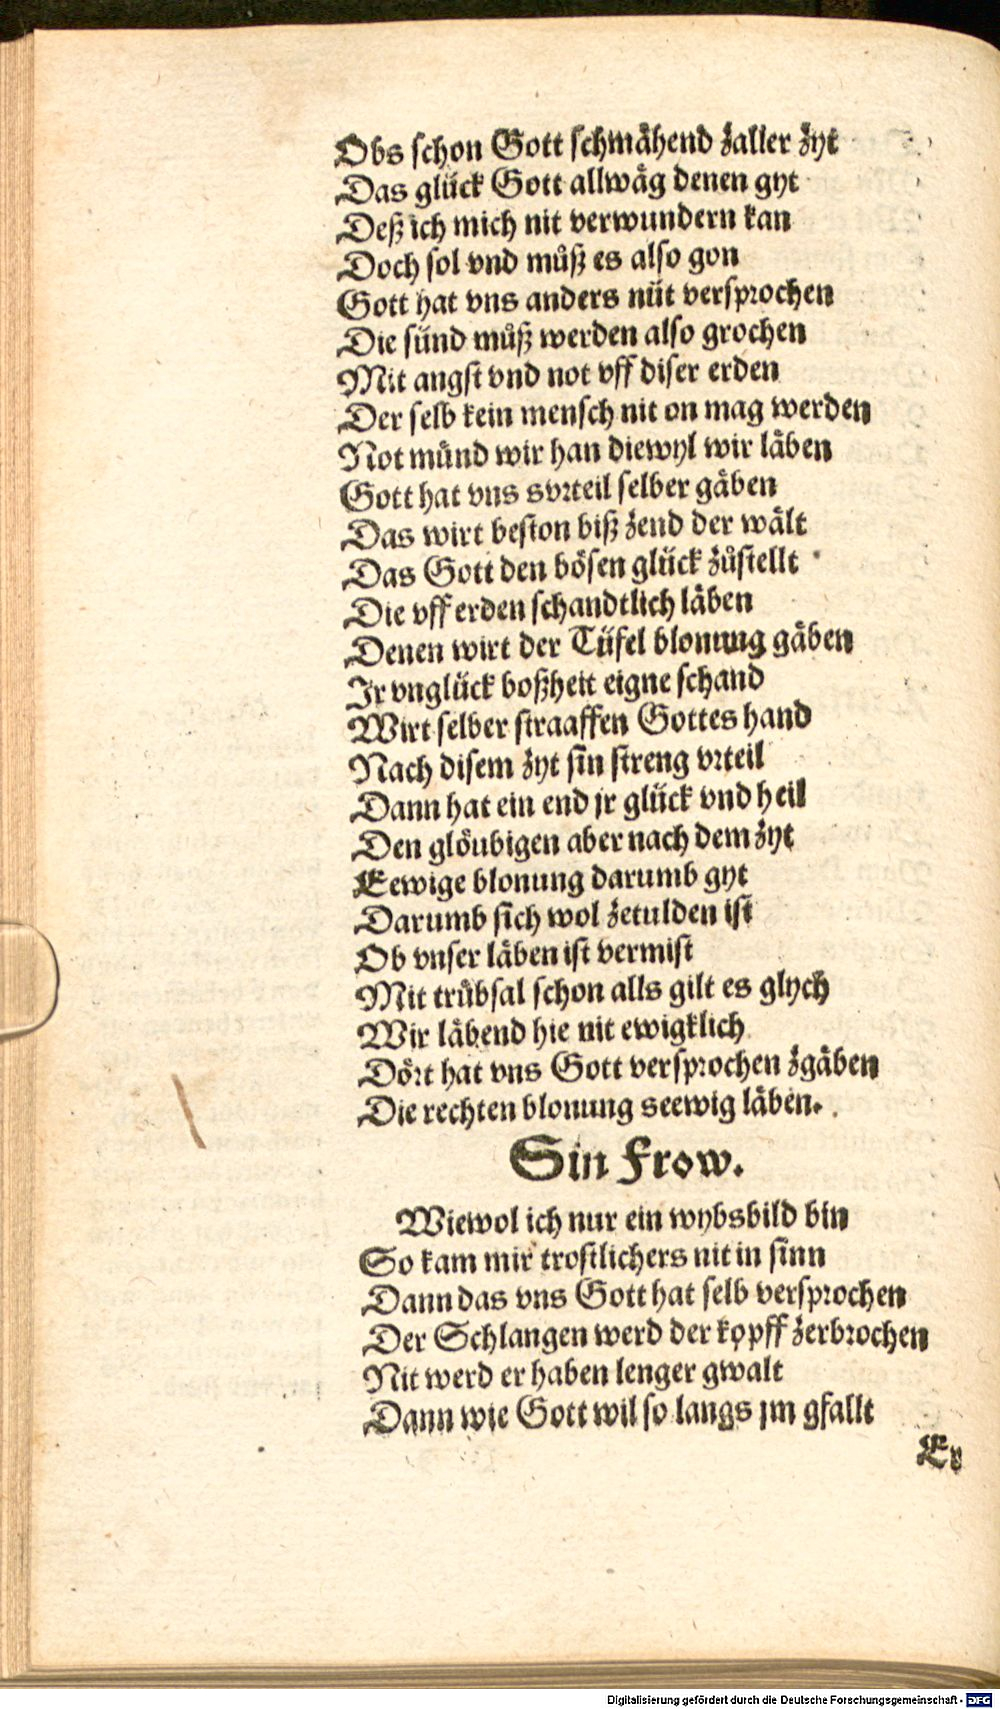 Obs schon Gott schmähend zaller zyt
Das glück Gott allwäg denen gyt
Deß ich mich nit verwundern kan
Doch sol vnd můß es also gon
Gott hat vns anders nüt versprochen
Die sünd můß werden also grochen
Mit angst vnd not vff diser erden
Der selb kein mensch nit on mag werden
Not münd wir han diewyl wir läben
Gott hat vns svrteil selber gäben
Das wirt beston biß zend der wält
Das Gott den bösen glück zůstellt
Die vff erden schandtlich läben
Denen wirt der Tüfel blonung gäben
Ir vnglück boßheit eigne schand
Wirt selber straaffen Gottes hand
Nach disem zyt sin streng vrteil
Dann hat ein end jr glück vnd heil
Den glöubigen aber nach dem zyt
Eewige blonung darumb gyt
Darumb sich wol zetulden ist
Ob vnser läben ist vermist
Mit trübsal schon alls gilt es glych
Wir läbend hie nit ewigklich
Dört hat vns Gott versprochen zgäben
Die rechten blonung seewig läben.
Sin Frow.
Wiewol ich nur ein wybsbild bin
So kam mir trostlichers nit in sinn
Dann das vns Gott hat selb versprochen
Der Schlangen werd der kopff zerbrochen
Nit werd er haben lenger gwalt
Dann wie Gott wil so langs jm gfallt
Er
Digitalisierung gefördert durch die Deutsche Forschungsgemeinschaft - DFG